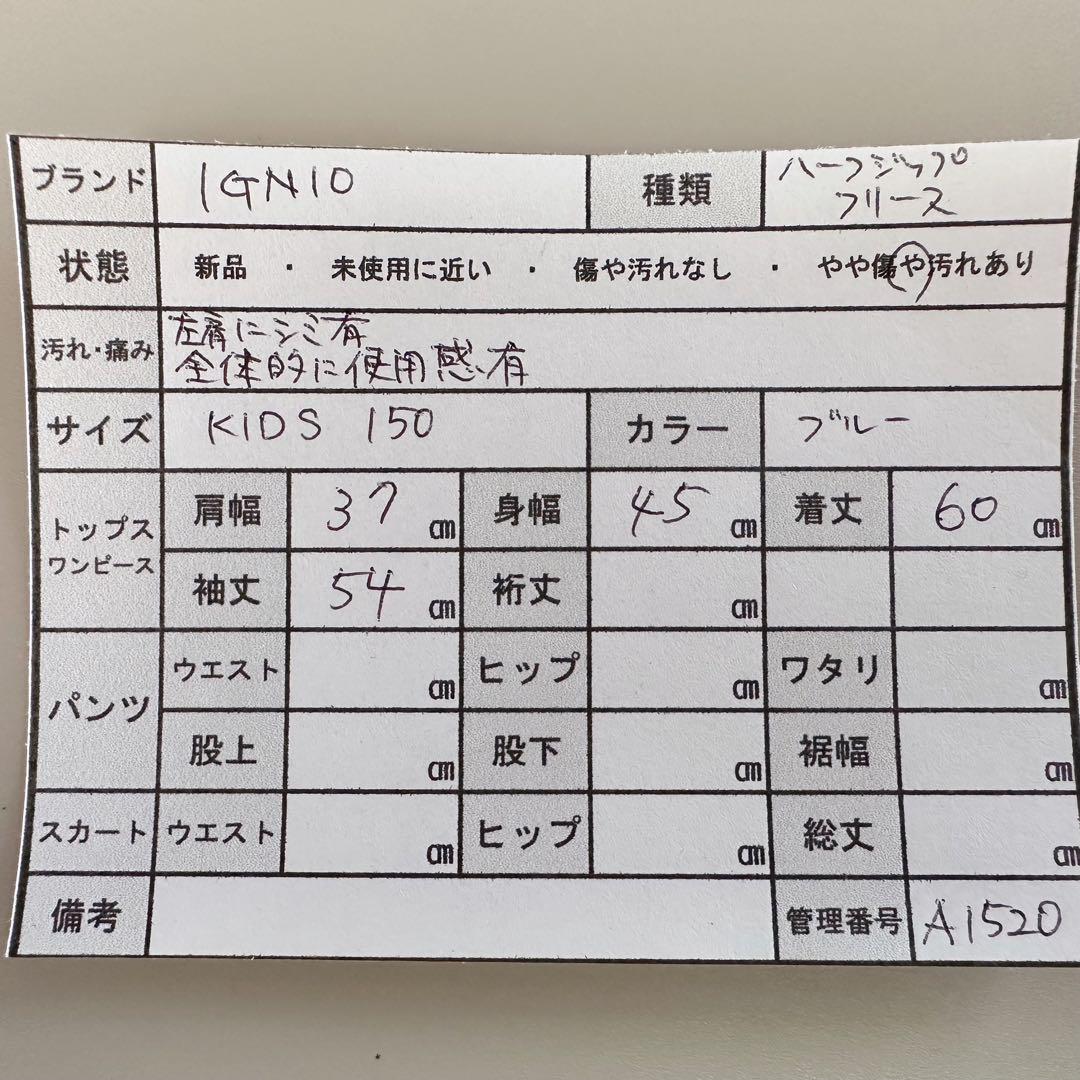 ブランド IGNIO 種類 ハーフジップ
フリース
状態 新品 ・ 未使用に近い ・ 傷や汚れなし ・ やや傷や汚れあり
汚れ・痛み 左肩にシミ有
全体的に使用感有
サイズ KIDS 150 カラー ブルー
トップス
ワンピース
肩幅 37 cm 身幅 45 cm 着丈 60 cm
袖丈 54 cm 裄丈 cm
パンツ
ウエスト cm ヒップ cm ワタリ cm
股上 cm 股下 cm 裾幅 cm
スカート ウエスト cm ヒップ cm 総丈 cm
備考 管理番号 A1520